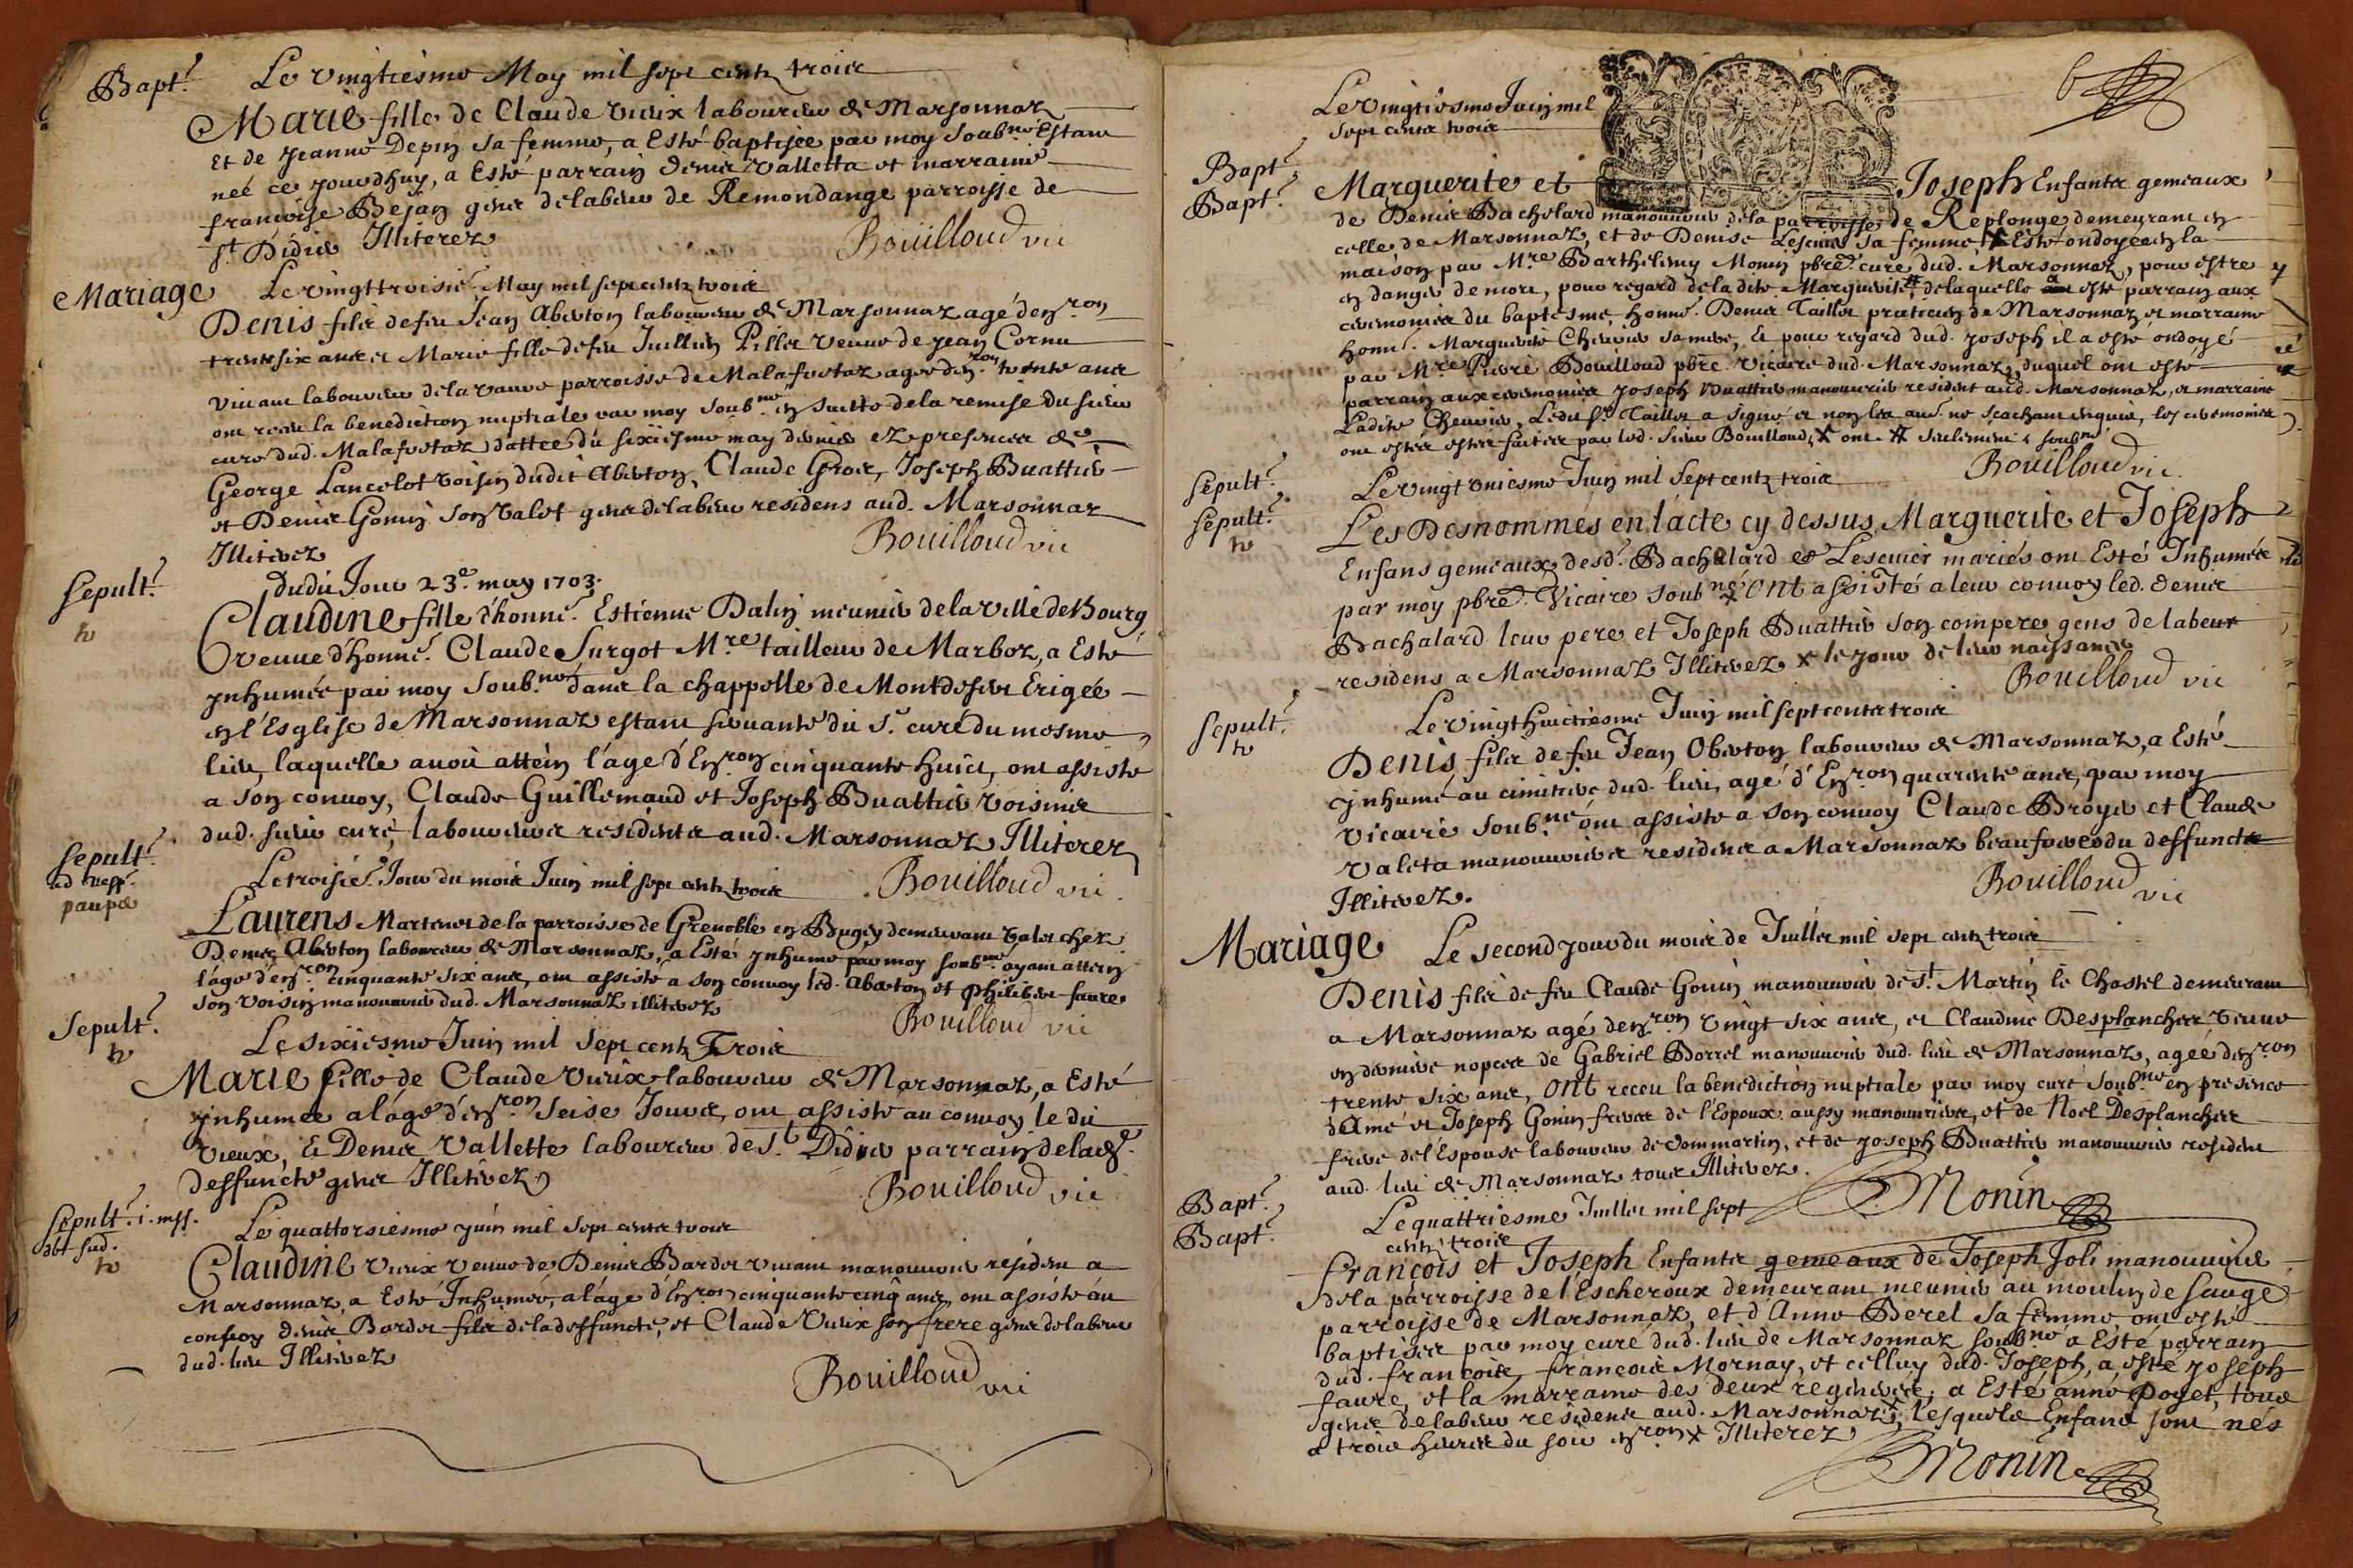 Bapt.e Le vingtiesme May mil sept centz trois
Marie fille de Claude vieix laboureur de Marsonnaz
Et de Jeanne Depin sa femme, a Esté baptisée par moy soub.né Estant
neé ce jourdhuy, a Esté parrain denis valletta et marraine
francoise Bejan gens delabeur de Remondange parroisse de
St. Didier Illiterez
Bouilloud vic
Mariage Le vingttroisie. May mil sept centz trois
Denis fils de feu Jean Aberton laboureur de Marsonnaz agé den.ron
trente six ans et Marie fille de feu Juillien Pillet veuve de jean Cornu
vivant laboureur dela vavre parroisse de Malafretaz agée den.ron trente ans
ont receu la benediction nuptiale par moy soub.né en suitte de la remise du sieur
curé dud. Malafretaz dattée du sixiesme may dernier ez presences de
George Lancelot voisin dudit Aberton, Claude Gros, Joseph Buattier
et Denis Gonin son valet gens delabeur residens aud. Marsonnaz
Illiterez
Bouilloud vic
Sepult.e dudit Jour 23e. may 1703.
Claudine fille d'honné. Estienne Dalin meunier de la ville de Bourg
veuve d'honné. Claude Surgot M.re tailleur de Marboz, a Esté
jnhumée par moy soub.né dans la chappelle de Montdesert Erigée
en l'Esglise de Marsonnaz estant servante du Sr. curé du mesme
lieu, laquelle avoit attein l'áge d'En.ron cinquante huict, ont assisté
a son convoy, Claude Guillemaud et Joseph Buattier voisins
dud. sieur curé, laboureurs residents aud. Marsonnaz Illiterez
Bouilloud vic
Sepult.e
Le troisie. Jour du mois Juin mil sept centz trois
Laurens Martenet de la parroisse de Grenoble en Bugey demeurant valet chez
Denis Aberton laboureur de Marsonnaz, a Esté jnhumé par moy soub.né ayant attein
l'áge d'en.ron cinquante six ans, ont assisté a son convoy led. Aberton et Philibert faure
son voisin manouvrier dud. Marsonnaz illiterez
Bouilloud vic
Sepult.e
Le sixiesme Juin mil Sept centz Trois
Marie fille de Claude vieix laboureur de Marsonnaz, a Esté
jnhumee a l'áge d'en.ron seise Jours, ont assisté au convoy le dit
vieux, & Denis Vallette laboureur de St. Didier parrain de lad.
deffuncte gens Illiterez
Bouilloud vic
Sepult.e 1. mss.
Le quattorsiesme juin mil Sept cents trois
Claudine vieix veuve de Denis Bardet vivant manouvrier resident a
Marsonnaz, a Esté Inhumée, a l'áge d'En.ron cinquante cinq ans, ont assisté au
convoy denis Bardet fils de la deffuncte, et Claude vieix son frere gens delabeur
dud. lieu Illiterez
Bouilloud vic
Le vingtiesme Juin mil
sept cents trois
Bapt.e
Bapt.e
Marguerite et Joseph Enfants gemeaux
de Denis Bachelard manouvrier de la parroisse de Replonge demeurant en
celle de Marsonnaz, et de Denise Lescuier sa femme, X Esté ondoyée en la
maison par M.re Barthelemy Monin pbre. curé dud. Marsonnaz, pour estre
en danger de mort, pour regard de la dite Marguerite # de laquelle a esté parrain aux
ceremonies du baptesme, honné. Denis Taillet praticien de Marsonnaz et marraine
honné. Marguerite Chenevier sa mere, & pour regard dud. joseph il a esté ondoyé
par M.re Pierre Bouilloud pbre. vicaire dud. Marsonnaz, duquel ont esté
parrain aux ceremonies joseph Buattier manouvrier resident aud. Marsonnaz, et marraine
Ladite Chenevier, Ledit Sr. Taillet a signé et non les aut. ne scachant enquis, les ceremonies
ont estés estés faites par led. sieur Bouilloud, X ont # seulement soub.né
Bouilloud vic.
Sepult.e
Sepult.e
Le vingt uniesme Juin mil Sept centz trois
Les Desnommés en l'ácte cy dessus, Marguerite et Joseph
Enfans gemeaux desd. Bachelard et Lescuier mariés ont Esté Inhumés
par moy pbre. Vicaire soub.né X ont assisté a leur convoy led. denis
Bachalard leur pere et Joseph Buattier son compere gens de labeur
residens a Marsonnaz Illiterez X le jour de leur naissance
Bouilloud vic
Sepult.e
Le vingt huictiesme Juin mil sept cents trois
Denis fils de feu Jean Oberton laboureur de Marsonnaz, a Esté
jnhumé au cimitire dud. lieu, agé d'En.ron quarente ans, par moy
vicaire soub.né ont assisté a son convoy Claude Broyer et Claude
Valeta manouvriers residens a Marsonnaz beaufreres du deffunct
Illiterez.
Bouilloud vic
Mariage Le second jour du mois de Juillet mil sept centz trois
Denis fils de feu Claude Gonin manouvrier de St. Martin le Chastel demeurant
a Marsonnaz agé den.ron vingt six ans, et Claudine Desplanches veuve
en dernieres nopces de Gabriel Borrel manouvrier dud. lieu de Marsonnaz, agée den.ron
trente six ans, ont receu la benediction nuptiale par moy curé soub.né en presence
d'Amé et Joseph Gonin freres de l'Espoux aussy manouvriers, et de Noel Desplanches
frere de l'Espouse laboureur de dommartin, et de joseph Buattier manouvrier resident
aud. lieu de Marsonnaz tous Illiterez.
Monin
Bapt.e
Bapt.e
Le quattriesme Juillet mil sept
centz trois
Francois et Joseph Enfants gemeaux de Joseph Joli manouvrier
de la parroisse de l'Escheroux demeurant meunier au moulin de Sauge
parroisse de Marsonnaz, et d'Anne Berel sa femme, ont esté
baptisés par moy curé dud. lieu de Marsonnaz soub.né a Esté parrain
dud. francois, francois Mornay, et celluy dud. Joseph, a esté joseph
faure, et la marraine des deux a Esté anne Poget, tous
gens delabeur residens aud. Marsonnaz X, lesquels Enfans sont nés
a trois heures du soir en.ron X Illiterez
Monin